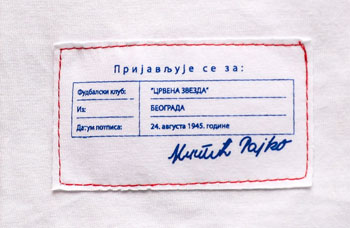 Пријављује се за:
Фудбалски клуб: "ЦРВЕНА ЗВЕЗДА"
Из: БЕОГРАДА
Датум потписа: 24. августа 1945. године
Митић Рајко